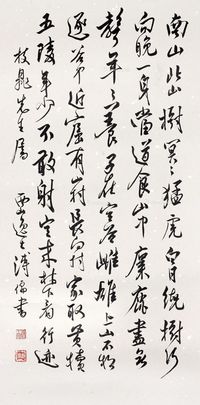 南山北山樹冥〻猛虎白日繞樹行
向晚一身當道食山中麋鹿盡無
聲年〻養子在空谷雌雄上山不相
逐谷中近窟有山村長向村家取黃犢
五陵年少不敢射空來林下看行跡
先生屬
西山逸士溥儒書